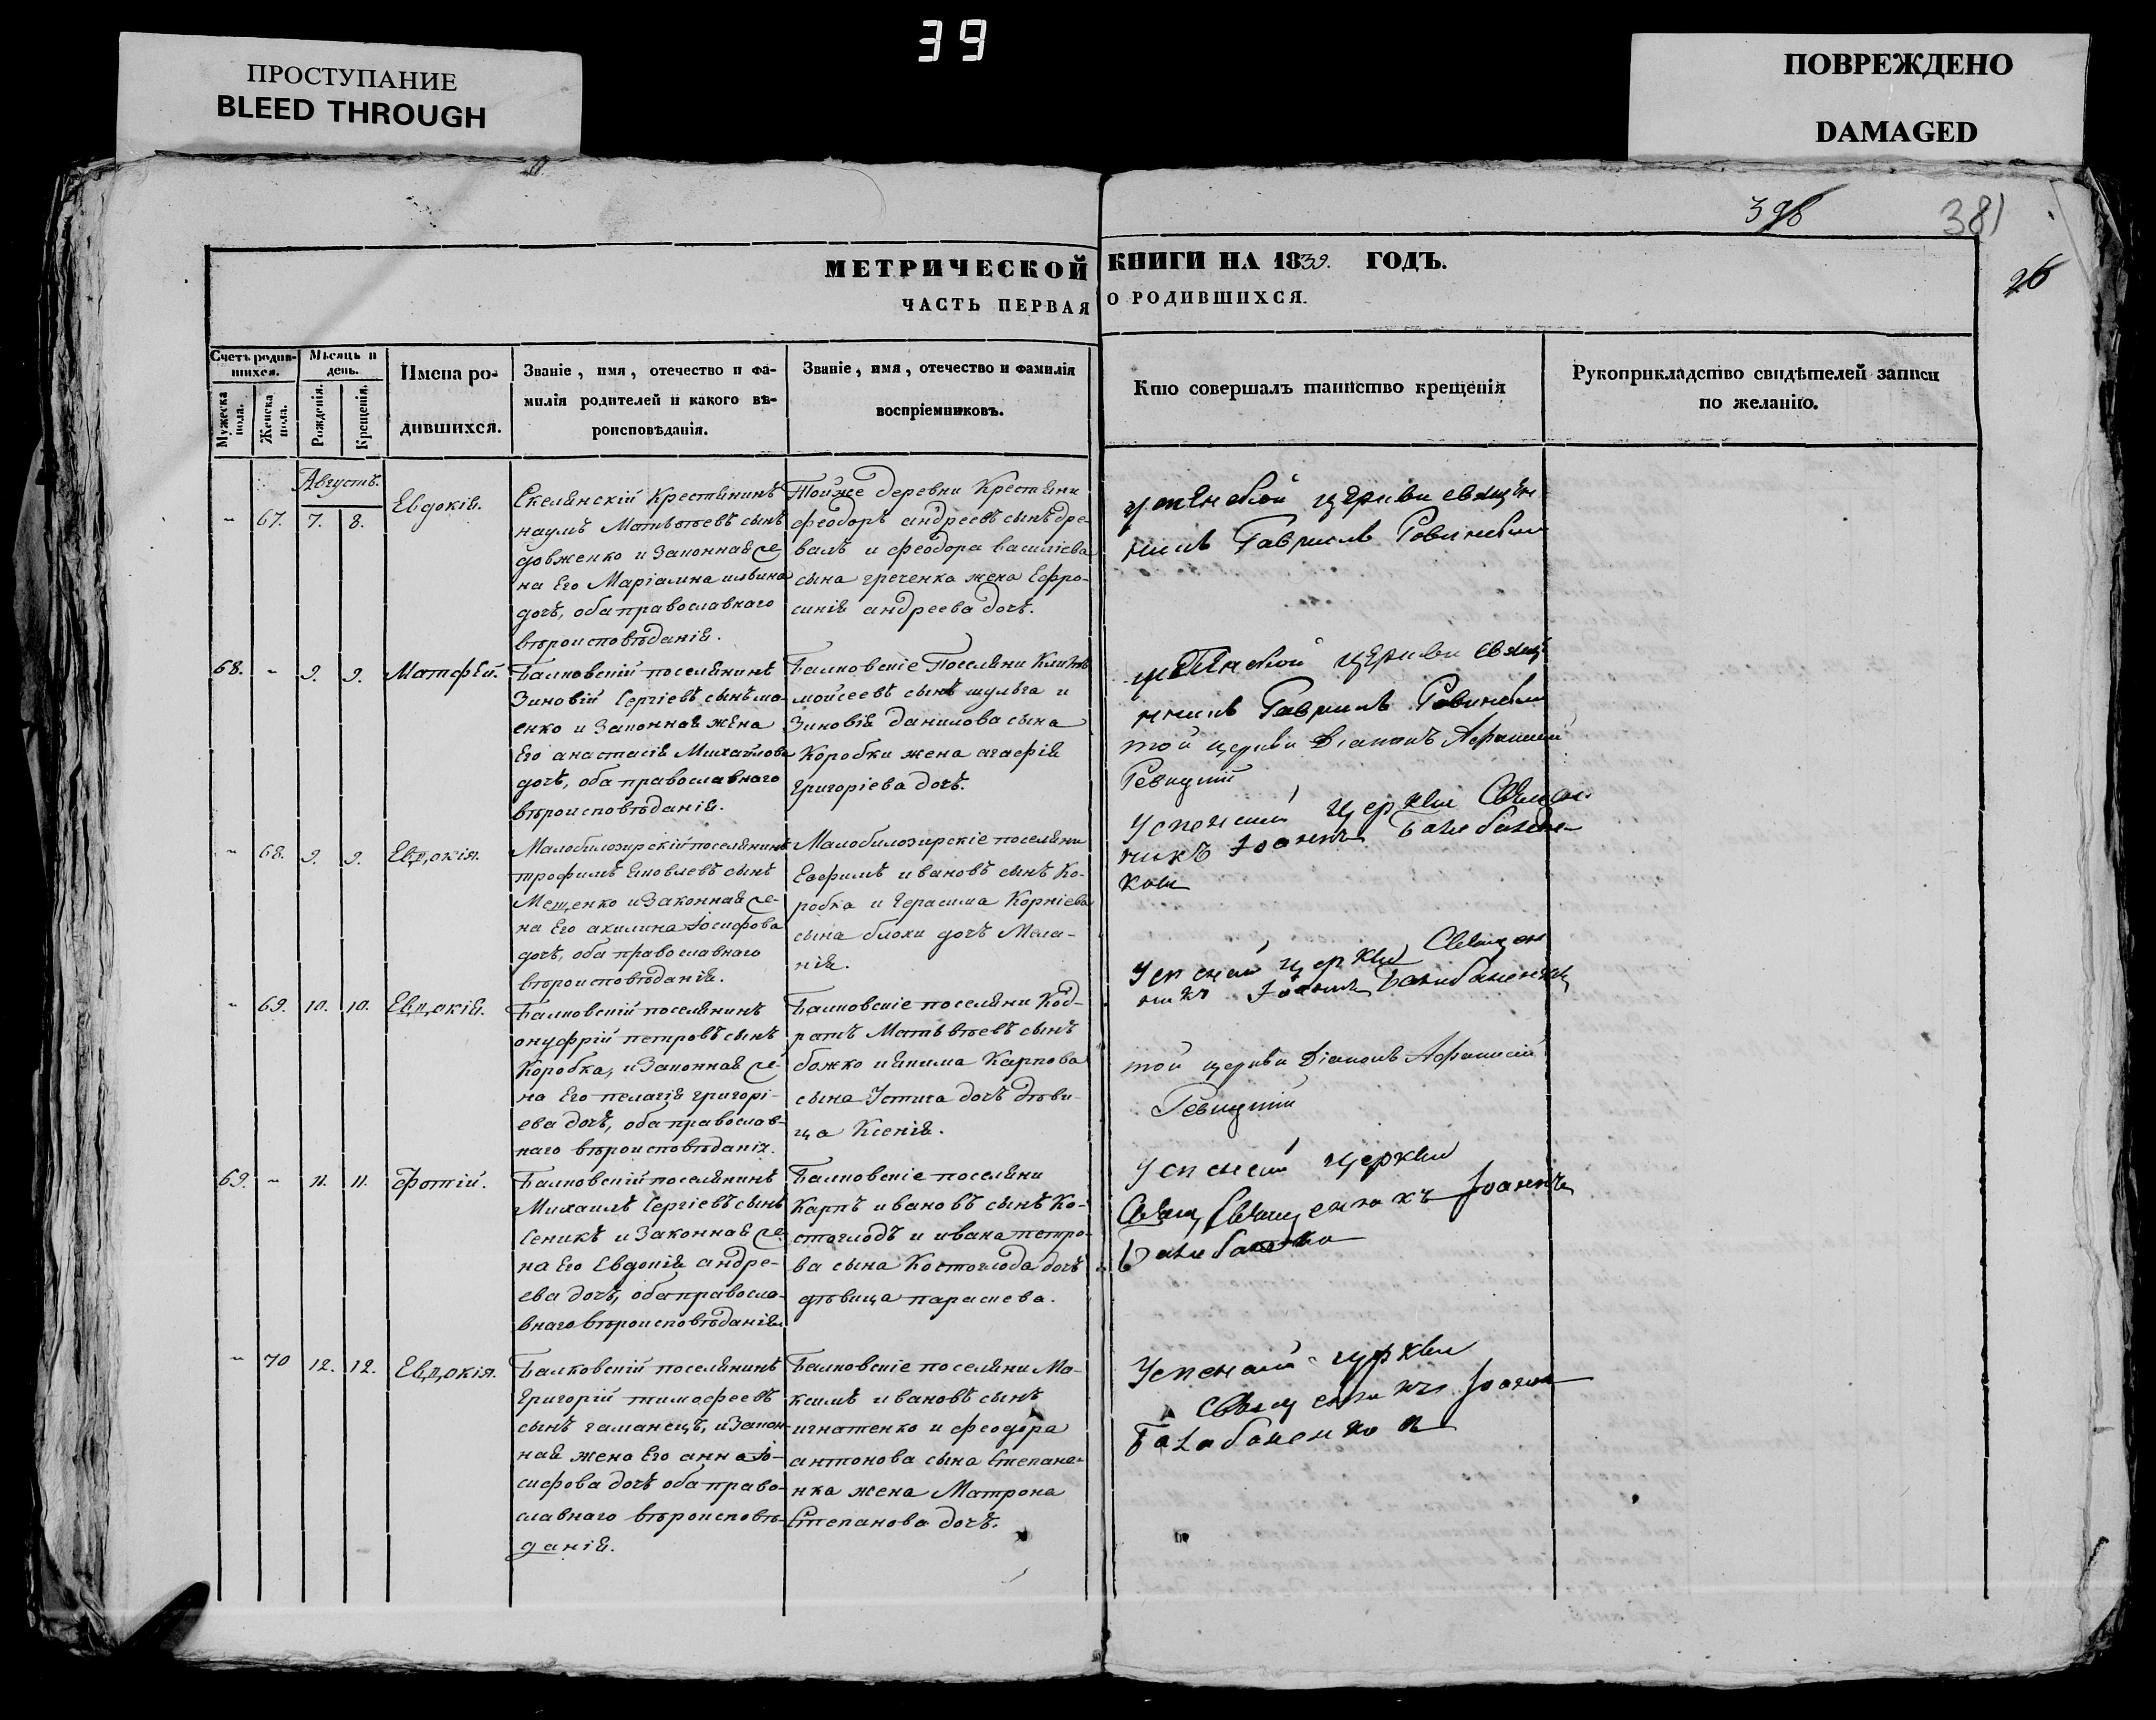 39
ПРОСТУПАНИЕ
BLEED THROUGH
ПОВРЕЖДЕНО
DAMAGED
381
26
МЕТРИЧЕСКОЙ КНИГИ НА 1839. ГОДЪ.
ЧАСТЬ ПЕРВАЯ О РОДИВШИХСЯ.
Счетъ родив-
шихся.
Мужеска пола.
Женска пола.
Мѣсяцъ и
день.
Рожденія.
Крещенія.
Имена ро-
дившихся.
Званіе, имя, отечество и фа-
милія родителей и какого вѣ-
роисповѣданія.
Званіе, имя, отечество и фамилія
воспріемниковъ.
Кто совершалъ таинство крещенія
Рукоприкладство свидѣтелей записи
по желанію.
Августъ.
- 67. 7. 8.
Евдокія.
Скелянскій Крестянинъ
наумъ Матьвѣевъ сынъ
довженко и Законная же
на Его Маріамна
дочь, оба православнаго
вѣроисповѣданія.
Тойже деревни Крестяни
феодоръ андреевъ сынъ дре-
валь и феодора василіева
сына греченка жена Ефро-
синія андреева дочь.
Успѣнской церкви священ
никъ Гавриилъ
68. - 9. 9.
Матфей.
Балковскій поселянинъ
Зиновій Сергіевъ сынъ
енко и Законная жена
Его анастасія Михайлова
дочь, оба православнаго
вѣроисповѣданія.
Балковскіе Поселяни
мойсеевъ сынъ шульга и
Зиновія данилова сына
Коробки жена агафія
григоріева дочь.
Успѣнской церкви свящ
нникъ Гавриилъ
той церкви Діаконъ Афанасій
Ревуцкій
- 68. 9. 9.
Евдокія.
Малобилозирскій поселянинъ
трофимъ яковлевъ сынъ
Мещенко и Законная же-
на Его акилина Іосифова
дочь, оба православнаго
вѣроисповѣданія.
Малобилозирскіе поселяни
Евфимъ ивановъ сынъ Ко-
робка и Герасима Корніева
сына блохи дочь Мела-
нія.
церкви
никъ Іоаннъ
- 69. 10. 10.
Евдокія.
Балковскій поселянинъ
онуфрій петровъ сынъ
Коробка, и Законная же-
на Его пелагія григорі-
ева дочь, оба православ-
наго вѣроисповѣданія.
Балковскіе поселяни Код-
ратъ Матьвѣевъ сынъ
божко и якима Карпова
сына Устича дочь дѣви-
ца Ксенія.
церкви
никъ Іоаннъ
той церкви Діаконъ Афанасій
Ревуцкій
69. - 11. 11.
Фотій.
Балковскій поселянинъ
Михаилъ Сергіевъ сынъ
Сеникъ и Законная же
на Его Евдокія андре-
ева дочь, оба правосла-
внаго вѣроисповѣданія.
Балковскіе поселяни
Карпъ ивановъ сынъ Ко-
стоглодъ и ивана петро-
ва сына Костоглода дочь
дѣвица параскева.
церкви
Священникъ Іоаннъ
- 70 12. 12.
Евдокія.
Балковскій поселянинъ
Григорій тимофеевъ
сынъ гаманецъ, и Закон-
ная жена Его анна Іо-
сифова дочь оба право-
славнаго вѣроисповѣ-
данія.
Балковскіе поселяни Ма-
ксимъ ивановъ сынъ
игнатенко и феодора
антонова сына Степане-
нка жена Матрона
Степанова дочь.
церкви
Священникъ Іоаннъ
Балабаненко